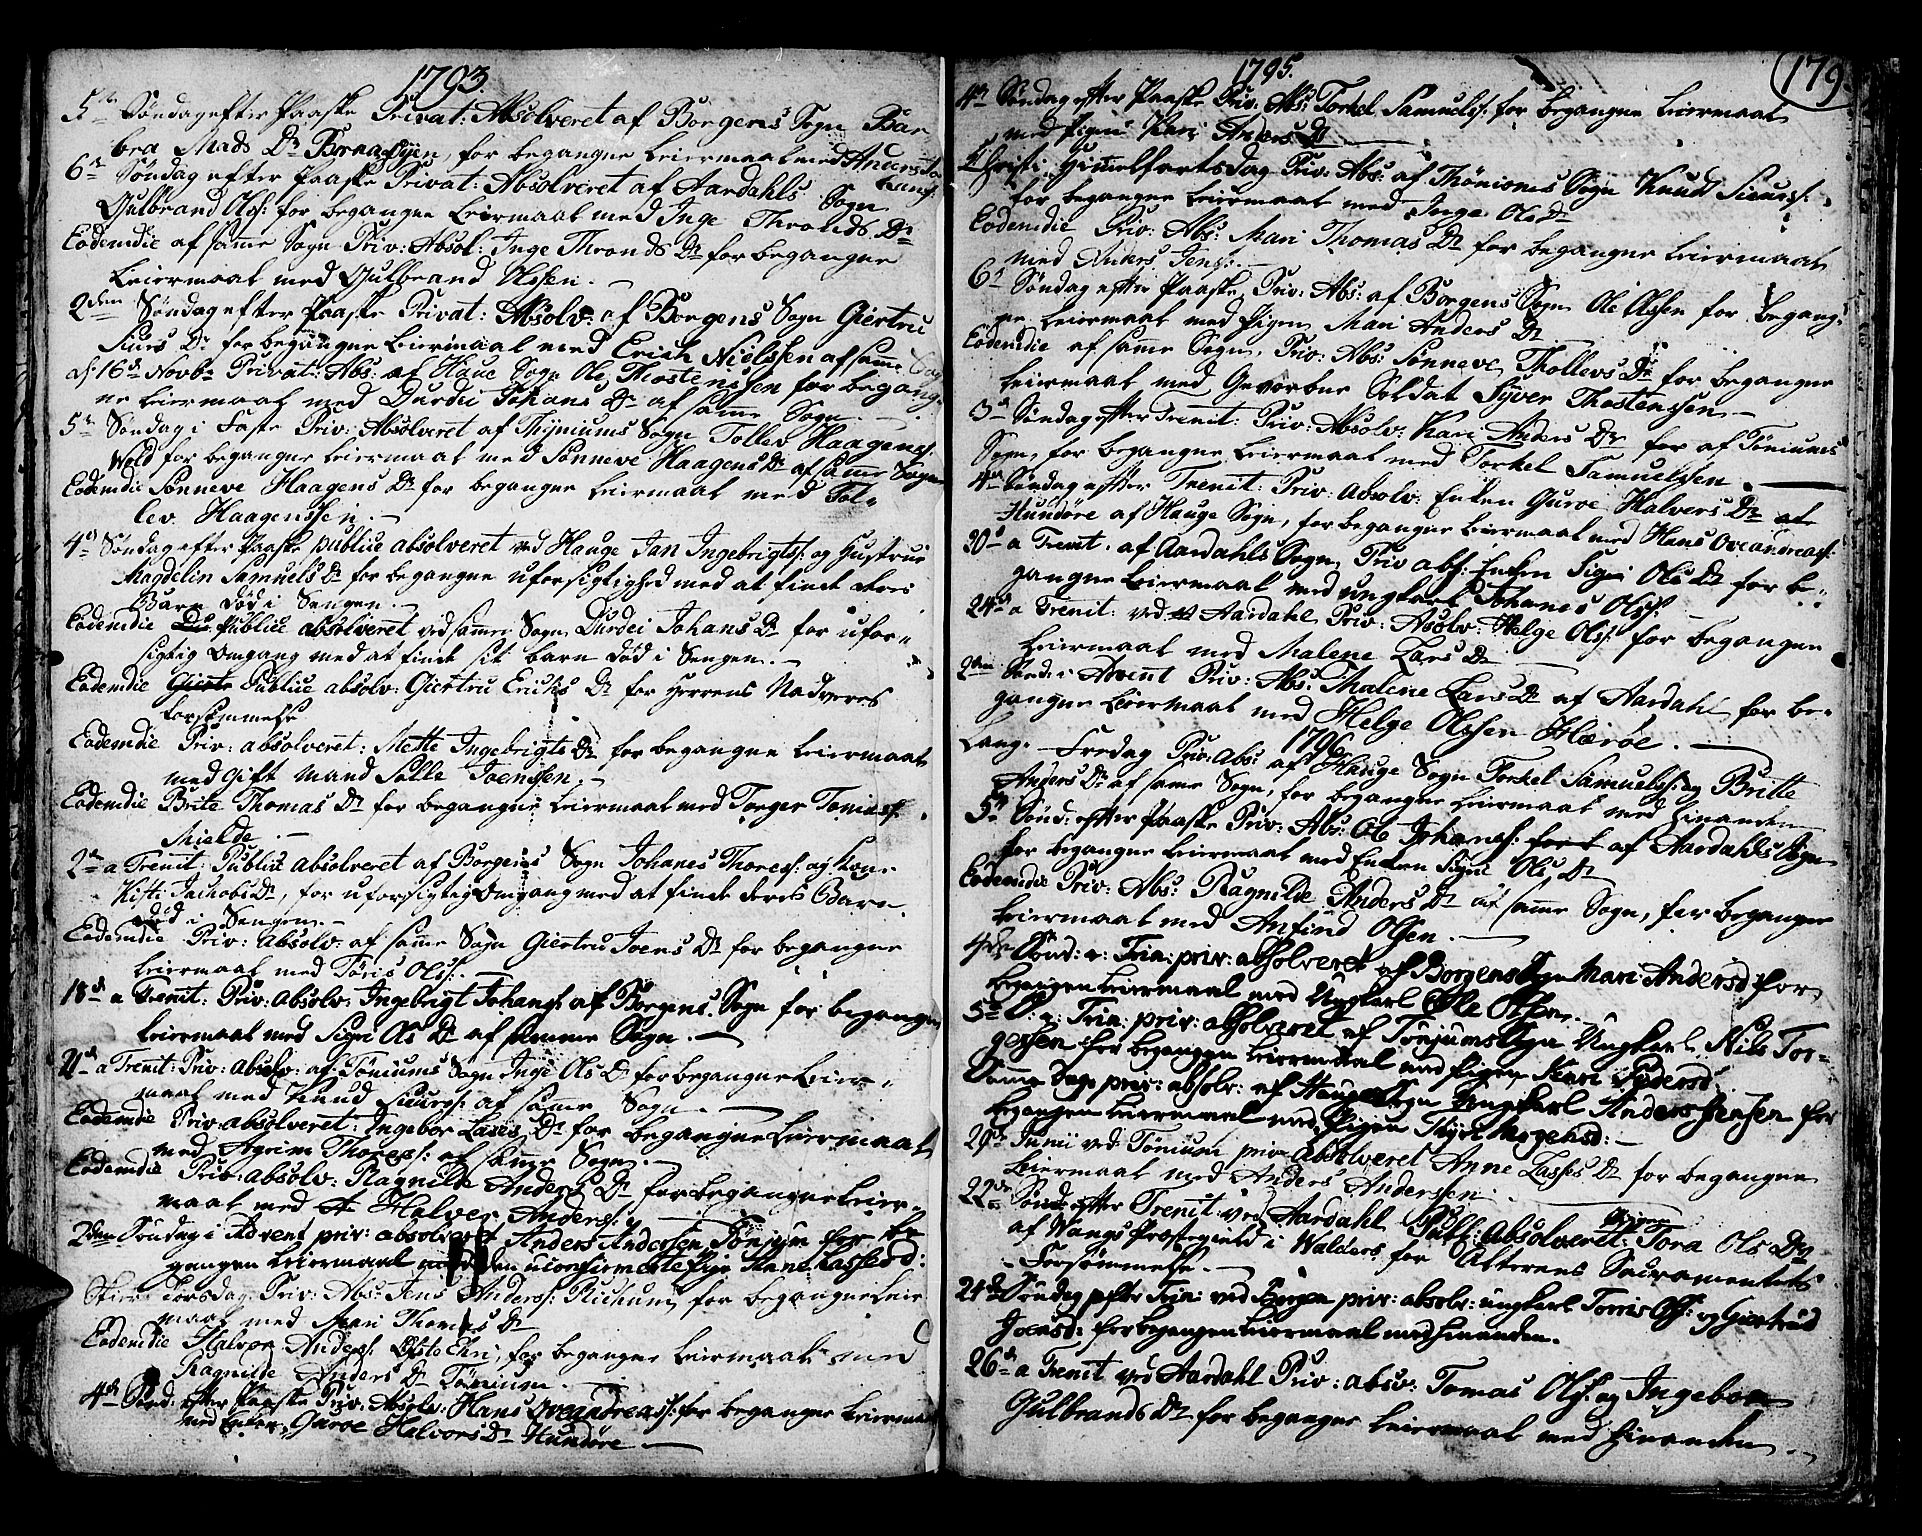 1793.
5te Søndag efter Paaske Privat: Absolveret af Borgens Sogn Bar
bra Mads Dr for begangne Leiermaal med Anders
6te Søndag efter Paaske Privat: Absolveret af Aardahls Sogn
Gulbrand Olss: for begangne Leiermaal med Inge Thronds Dr
Eodemdie af samme Sogn Priv: Absol: Inge Thronds Dr for begangne
Leiermaal med Gulbrand Olssen. –
2den Søndag efter Paaske Privat: Absolv: af Borgens Sogn Giertru
Siurs Dr for begangne Leiermaal med Erich Nielssen af samme Sogn
d: 16de Novbr Privat: Abs: af Hauge Sogn Ole Thostenssen for begang-
ne Leiermaal med Durdei Johans Dr af samme Sogn. –
5te Søndag i Faste Priv: Absolveret af Thøniums Sogn Tollev Haagens:
Wold for begangne Leiermaal med Sønneve Haagens Dr af samme Sogn
Eodemdie Sønneve Haagens Dr for begangne Leiermaal med Tol-
lev Haagenssen. –
4de Søndag efter Paaske publice absolveret ved Hauge Jan Ingebrigts: og Hustrue
Magdelin Samuels Dr for begangne uforsigtighed med at finde deres
Barn død i Sengen. –
Eodemdie Publice absolveret ved samme Sogn Durdei Johans Dr for ufor-
sigtig Omgang med at finde sit barn død i Sengen. –
Eodemdie Publice absolv: Giertru Erichs Dr for Herrens Nadveres
Forsømmelse
Eodemdie Priv: absolveret: Mette Ingebrigts Dr for begangne Leiermaal
med Gift Mand Salle Joenssen. –
Eodemdie Brite Thomas Dr for begangne Leiermaal med Torger Tomas:
Mielde. –
2de a Trenit: Publice absolveret af Borgens Sogn Johanes Thoress: og Kone
Kisti Jacobs Dr, for uforsigtig Omgang med at finde deres Barn
død i Sengen. –
Eodemdie Priv: absolv: af samme Sogn Giertru Joens Dr for begangne
Leiermaal med Tøris Olss: –
18de a Trenit: Priv: absolv: Ingebrigt Johanss: af Borgens Sogn for begangen
Leiermaal med Sigri Ols Dr af samme Sogn. –
21de a Trenit: Priv: absolv: af Tøniums Sogn Inge Ols Dr for begangne Leier-
maal med Knud Siurss: af samme Sogn. –
Eodemdie Priv: absolveret: Ingebor Lasses Dr for begangne Leiermaal
med Agrim Thoress: af samme Sogn. –
Eodemdie Priv: absolv: Ragnilde Anders Dr for begangne Leier-
maal med Halvor Anders:
2den Søndag i Advent priv: absolveret Anders Andersen Tønjum for be
gangen Leiermaal den uconfirmerte Pige Anne Lassesd:
Skier Torsdag Priv: Abs: Jens Anderss: for begangne Leier
maal med Mari Thomas Dr
Eodemdie Halvor Anders: for begangne Leiermaal med
Ragnilde Anders Dr Tønium. –
4de Sønd: efter Paaske Priv: Absolv: Hans Oveandreass: for begangne Leiermaal
med Enken Guroe Halvors Dr Hundøre –
1795.
179
4de Søndag efter Paaske Priv: Abs: Torkel Samuelss: for begangne Leiermaal
med Pigen Kari Anders Dr
Christi Himmelfarts Dag Priv: Abs: af Thøniums Sogn Knudt Siurss:
for begangne Leiermaal med Inge Ols Dr
Eodemdie Priv: Abs: Mari Thomas Dr for begangne Leiermaal
med Anders Jens: –
6te Søndag efter Paaske Priv: Abs: af Borgens Sogn Ole Olssen for begang-
ne Leiermaal med Pigen Mari Anders Dr
Eodemdie af samme Sogn, Priv: Abs: Sønneve Thollevs Dr for begangne
Leiermaal med Gevorbne Soldat Syver Thostenssen –
3de Søndag efter Trenit: Priv: Absolv: Kari Anders Dr for af Tøniums
Sogn, for begangne Leiermaal med Torkel Samuelssen –
4de Søndag efter Trenit: Priv: Absolv: Enken Guroe Halvers Dr
Hundøre af Hauge Sogn, for begangne Leiermaal med Hans Oveandreass:
20de a Trenit. af Aardahls Sogn Priv abs: Enken Signi Ols Dr for be-
gangne Leiermaal med ungkarl Johanes Olss:
24de a Trenit: ved Aardahl Priv: Absolv: Helge Olss: for begangne
Leiermaal med Malene Lars Dr –
2den Sønd: i Advent Priv: Abs: Malene Lars Dr af Aardahl for be-
gangne Leiermaal med Helge Olssen Hærøe. –
1796
Lang- Fredag Priv: Abs: af Hauge Sogn Torkel Samuelss: og Britte
Anders Dr af samme Sogn, for begangne Leiermaal med hinanden
5te Sønd: efter Paaske Priv: Abs: Ole Johaness: af Aardahls Sogn
for begangne Leiermaal med Enken Signe Ols Dr
Eodemdie Priv: Abs: Ragnilde Anders Dr af samme Sogn, for begangne
Leiermaal med Anfind Olssen. –
4de Sønd: a: Trin: priv: absolveret af Borgens Sogn Mari Andersd: for
begangen Leiermaal med Ungkarl Ole Olsen. –
5te S: a: Trin: priv: absolveret af Tønjums Sogn Ungkarl Nils Tor-
gersen for begangen Leiermaal med Pigen Kari Pedersd
Samme Dag priv: absolv: af Hauge Sogn Ungkarl Anders Jensen for
begangen Leiermaal med Pigen Thyri Mogensd: –
29de Junii ved Tønium priv: Absolveret Anne Lasses Dr for begangne
Leiermaal med Anders Anderssen –
22de Sønd: efter Trenit ved Aardahl Publ: Absolveret: Tora Ols Dr
af Wangs Præstegield i Walders, for Alterens Sacramentets
Forsømmelse. –
24de Søndag efter Trin: ved Borgen priv: absolv: ungkarl Torris Olss: og Giertrud
Joensd: for begangen Leiermaal med hinanden.
26de a Trenit ved Aardahl Priv: absv: Tomas Olss: og Ingebor
Gulbrands Dr for begangne Leiermaal med hinanden –